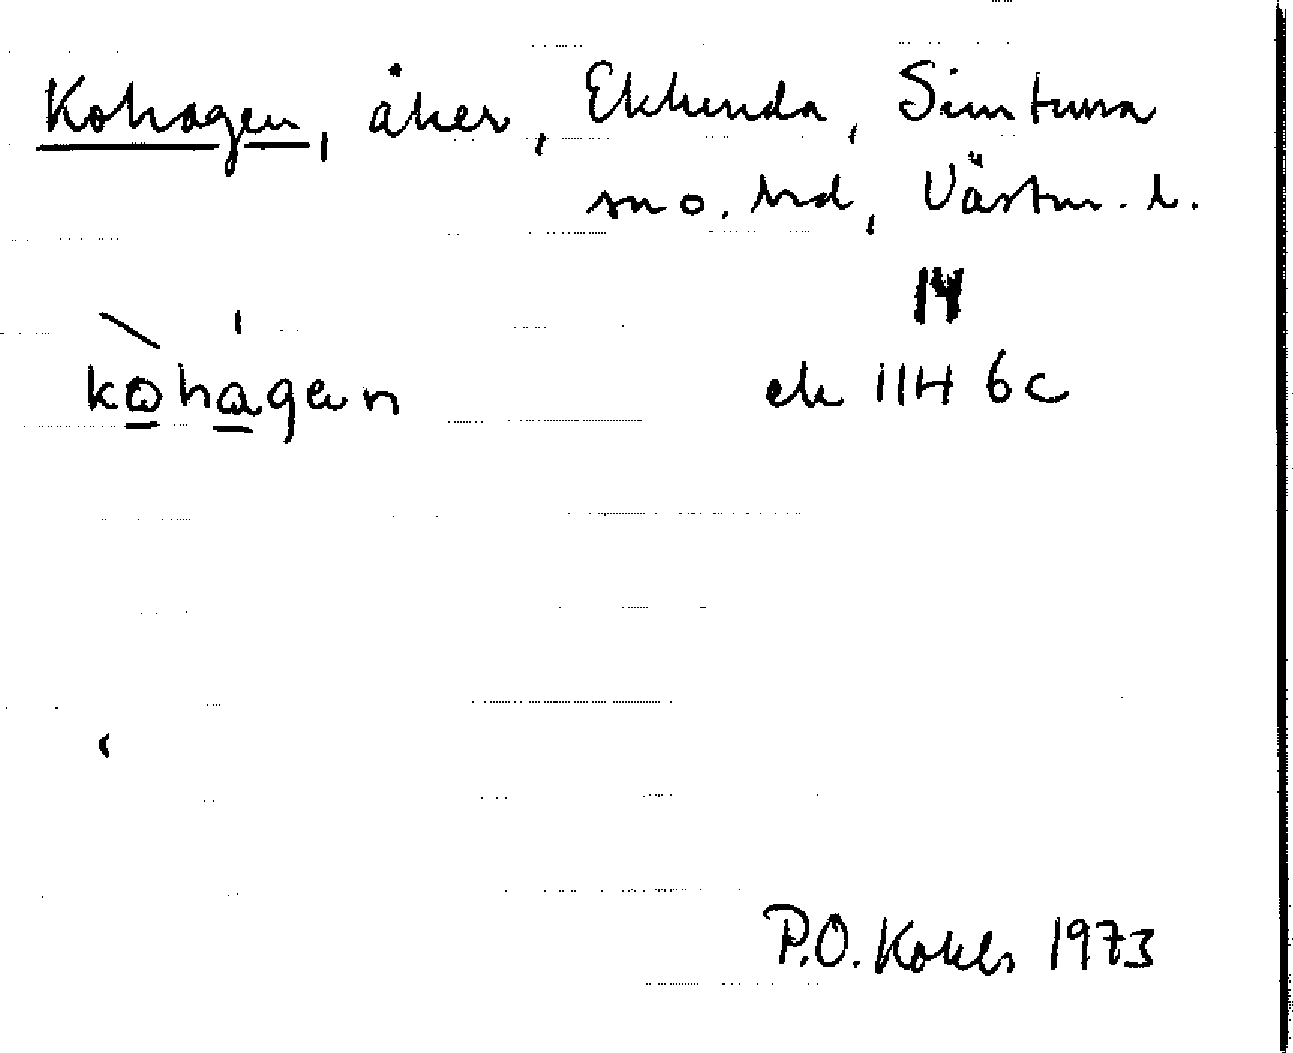 Kohagen, åker, Ekhunda, Simtuna
sn o. hd, Västm. l.
14
kohagən
ek 11H 6c
P.O. 1973